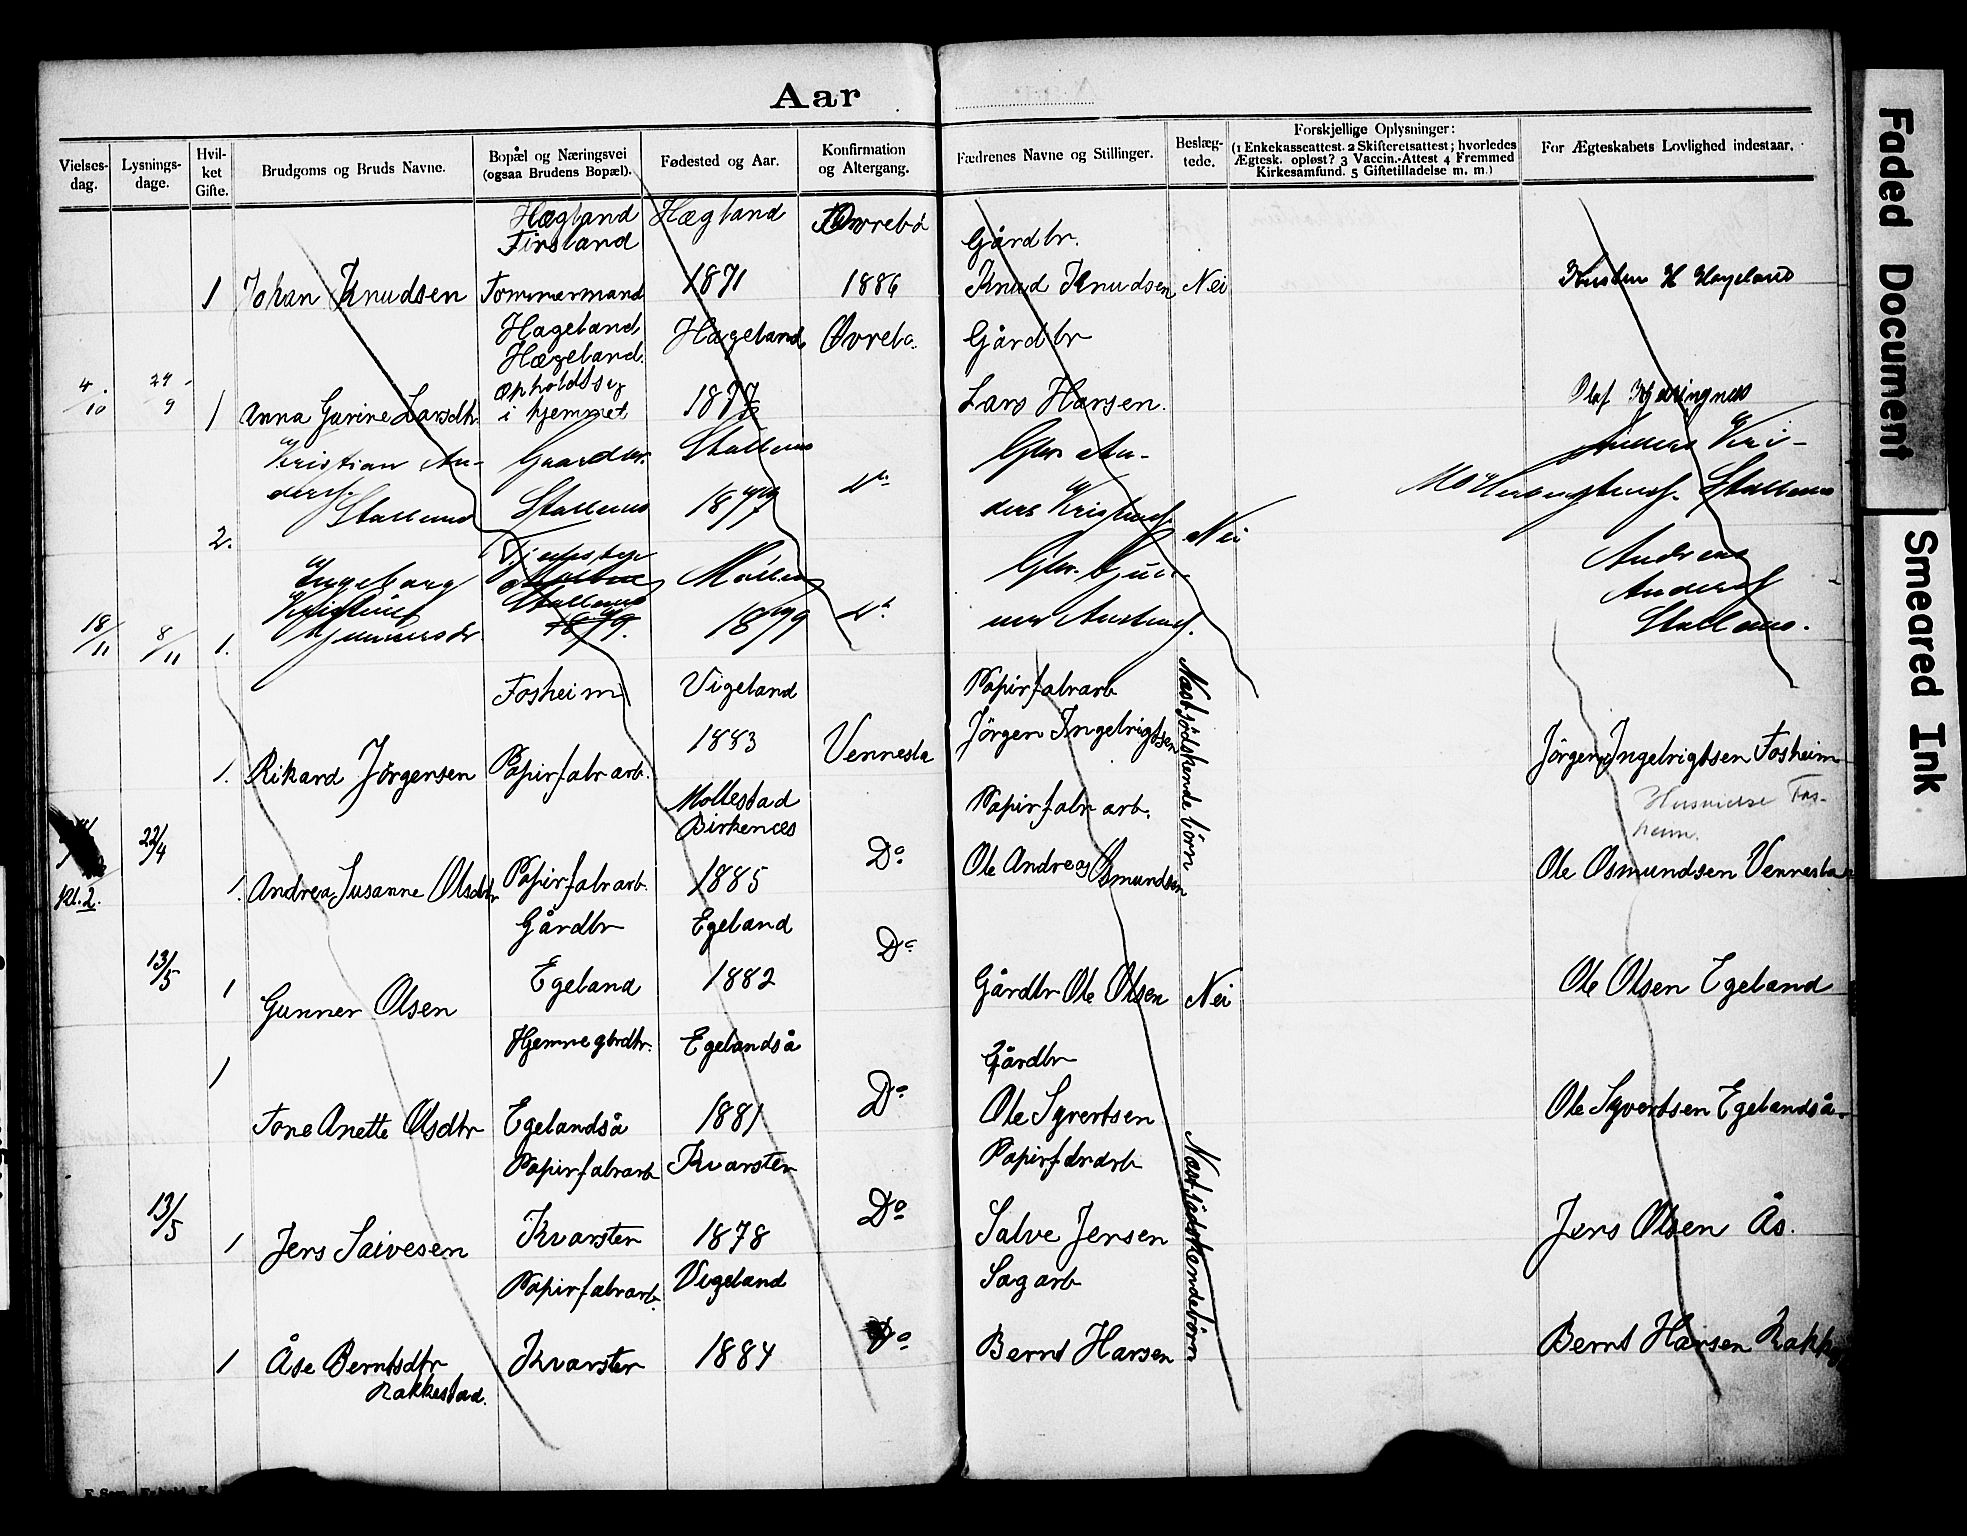 Aar
Vielses-
dag.
Lysnings-
dage.
Hvil-
ket
Gifte.
Brudgoms og Bruds Navne.
Bopæl og Næringsvei
(ogsaa Brudens Bopæl).
Fødested og Aar.
Konfirmation
og Altergang.
Fædrenes Navne og Stillinger.
Beslæg-
tede.
Forskjellige Oplysninger:
(1 Enkekasseattest. 2 Skifteretsattest; hvorledes
Ægtesk. opløst? 3 Vaccin.-Attest 4 Fremmed
Kirkesamfund. 5 Giftetilladelse m. m.)
For Ægteskabets Lovlighed indestaar.
Hægland Hægland Øvrebö
Firsland Gårdbr.
1 Johan Knudsen Tømmermand 1871 1886 Knud Knudsen Nei H Hageland
Hageland Hageland Øvrebö Gårdbr
Hægeland.
4/10 29/9 opholdt sig Olaf
1 Anna Gurine Larsdtr i hjemmet 187 Lars Hansen.
Kristian An- Gaardbr. Stallemo Gbr. An- Anders Kri-
ders. Stallemo Stallemo 1877 Do ders Stallemo
2. Nei
Ingeborg Gbr. Andreas
Anders.
18/11 8/11 1. Gunnersdr Stallemo 1879 Do Stallemo.
Fosheim Vigeland Papirfabrarb
1. Rikard Jörgensen Papirfabrarb. 1883 Vennesla Jörgen Ingebrigtsen Næstsödskendebörn Jörgen Ingebrigtsen Fosheim
Mollestad Papirfabrarb. Husvielse Fos-
Birkenæs heim.
22/4 Do
Kl. 2. 1. Andrea Susanne Olsdtr Papirfabrarb. 1885 Ole Andreas Osmundsen Ole Osmundsen Vennesla
Gårdbr Egeland Do
13/5 1 Gunner Olsen Egeland 1882 Gårdbr Ole Olsen Nei Ole Olsen Egeland
Hjemme gbrdtr. Egelandså Gårdbr
1 Tone Anette Olsdtr Egelandså 1881 Do Ole Syvertsen Ole Syvertsen Egelandså
Papirfabrarb Kvarsten Papirfabrarb
13/5 1 Jens Salvesen Kvarsten 1878 Do Salve Jensen Næstsödskendebörn Jens Olsen Ås.
Papirfabrarb. Vigeland Sagarb
1 Åse Berntsdtr Kvarsten 1884 Do Bernt Hansen Bernt Hansen
Rakkestad.
Faded Document
Smeared Ink